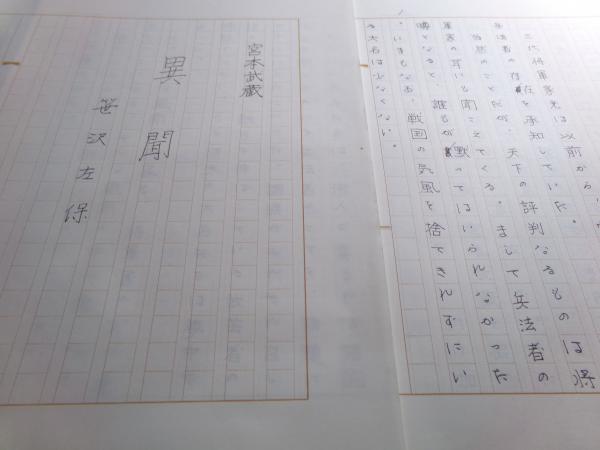 宮本武蔵
異聞
笹沢左保
三代将軍家光は以前から、
兵法者の存在を承知していた。
当然のことだが、天下の評判なるものは将
軍家の耳にも聞こえてくる。まして兵法者の
噂となると、誰もが黙ってはいられなかった
。いまもなお、戦国の気風を捨てきれずにい
る大名は少なくない。